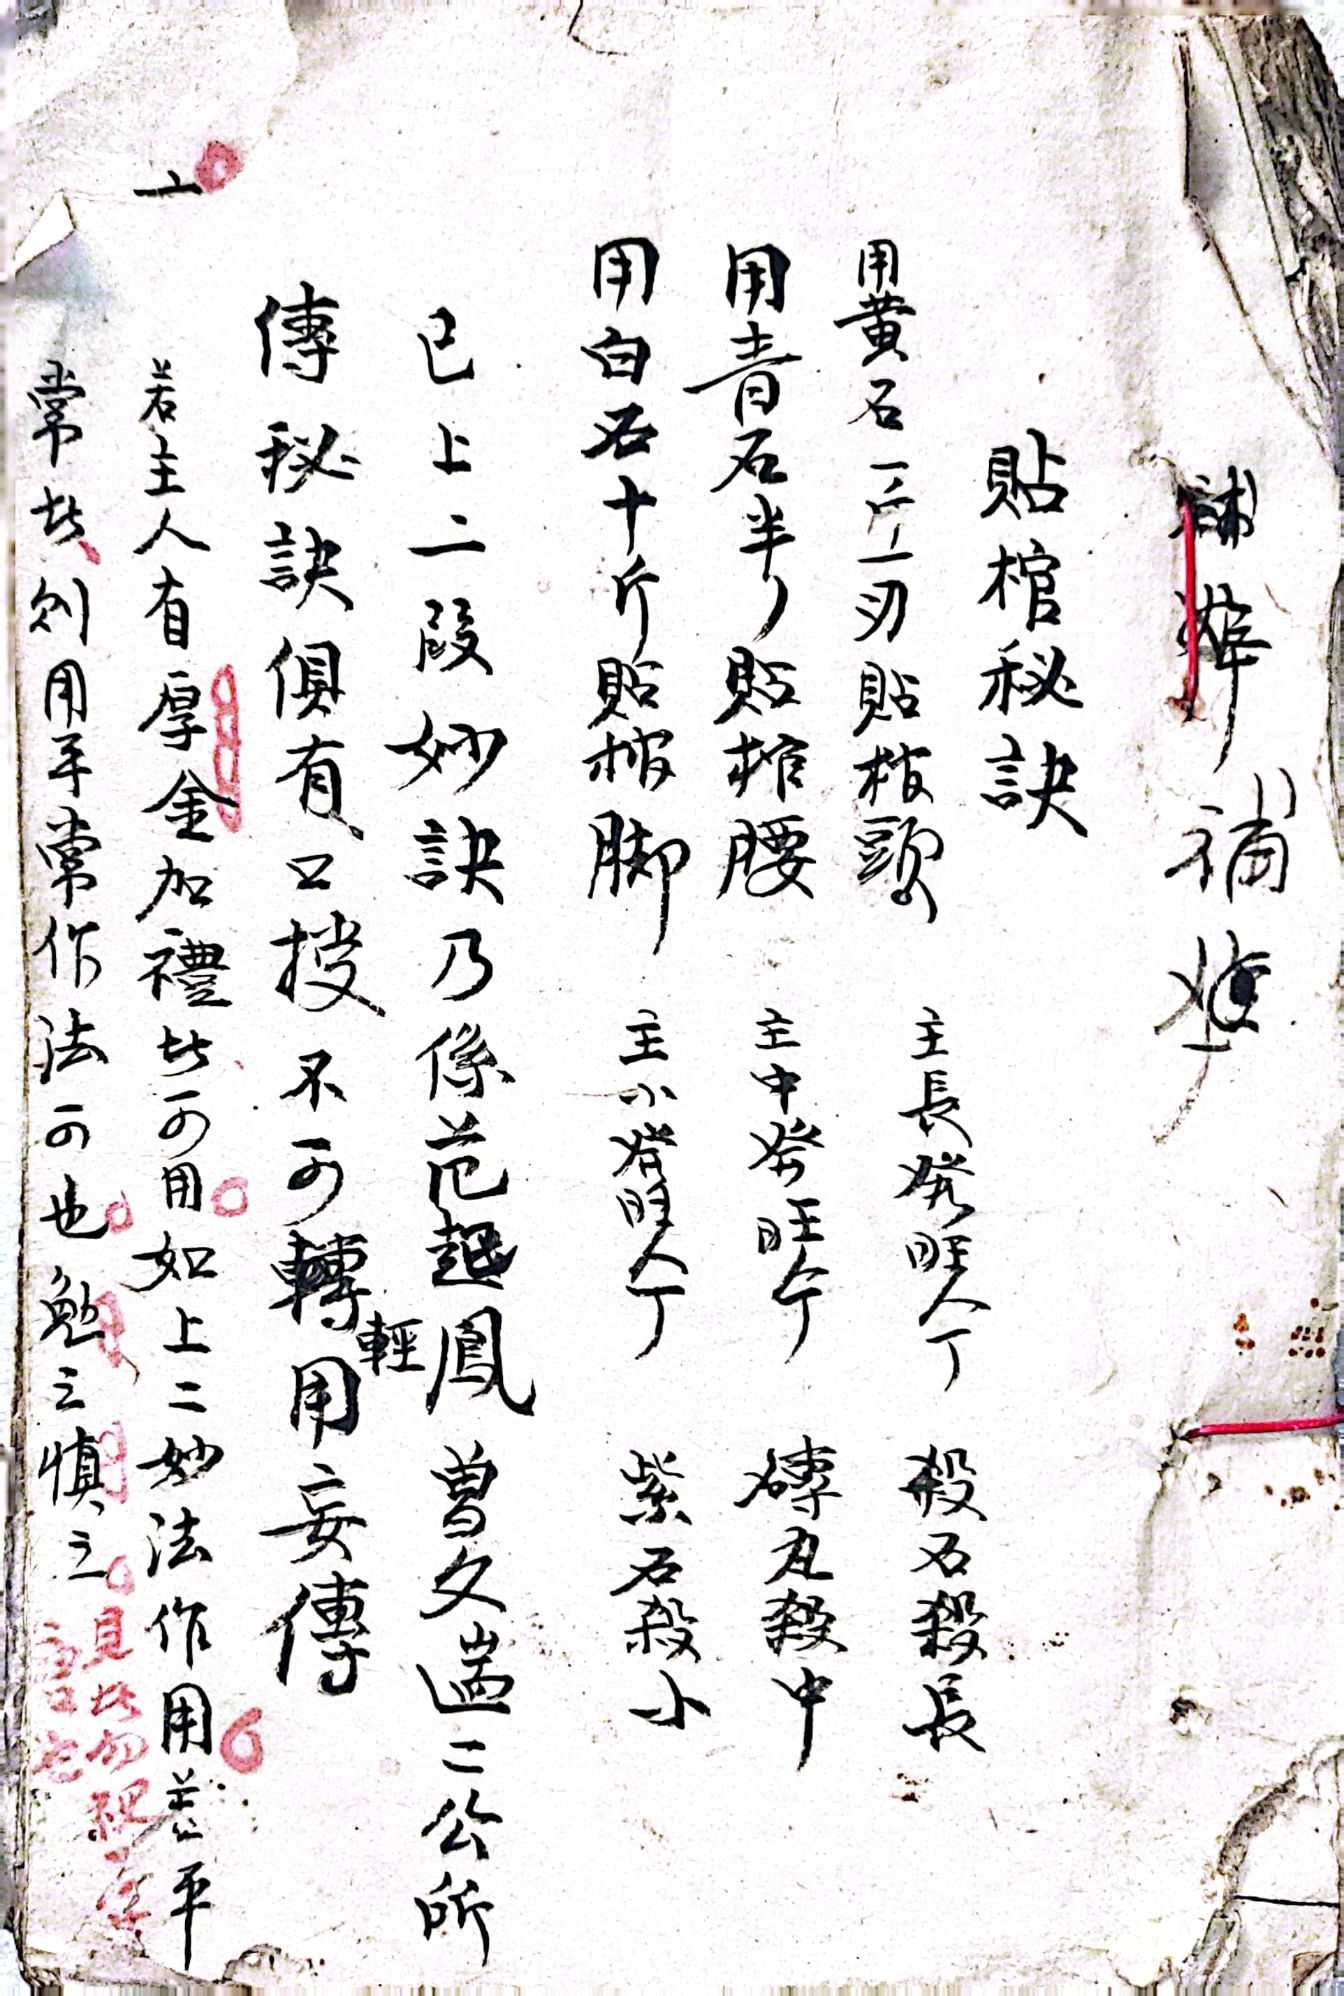 補
貼棺秘訣
用黄石一斤一刃貼棺頭 主長發旺人丁 殺石殺長
用青石半斤貼棺腰 主中發旺人丁 磚瓦殺中
用白石十斤貼棺脚 主小發旺人丁 紫石殺小
已上二段妙訣乃係范越鳳曾文遄二公所
傳秘訣俱有口授不可轉用妄傳
輕
一
若主人有厚金加禮此可用如上二妙法作用差平
常此則用平常作法可也勉之慎之
見此勿